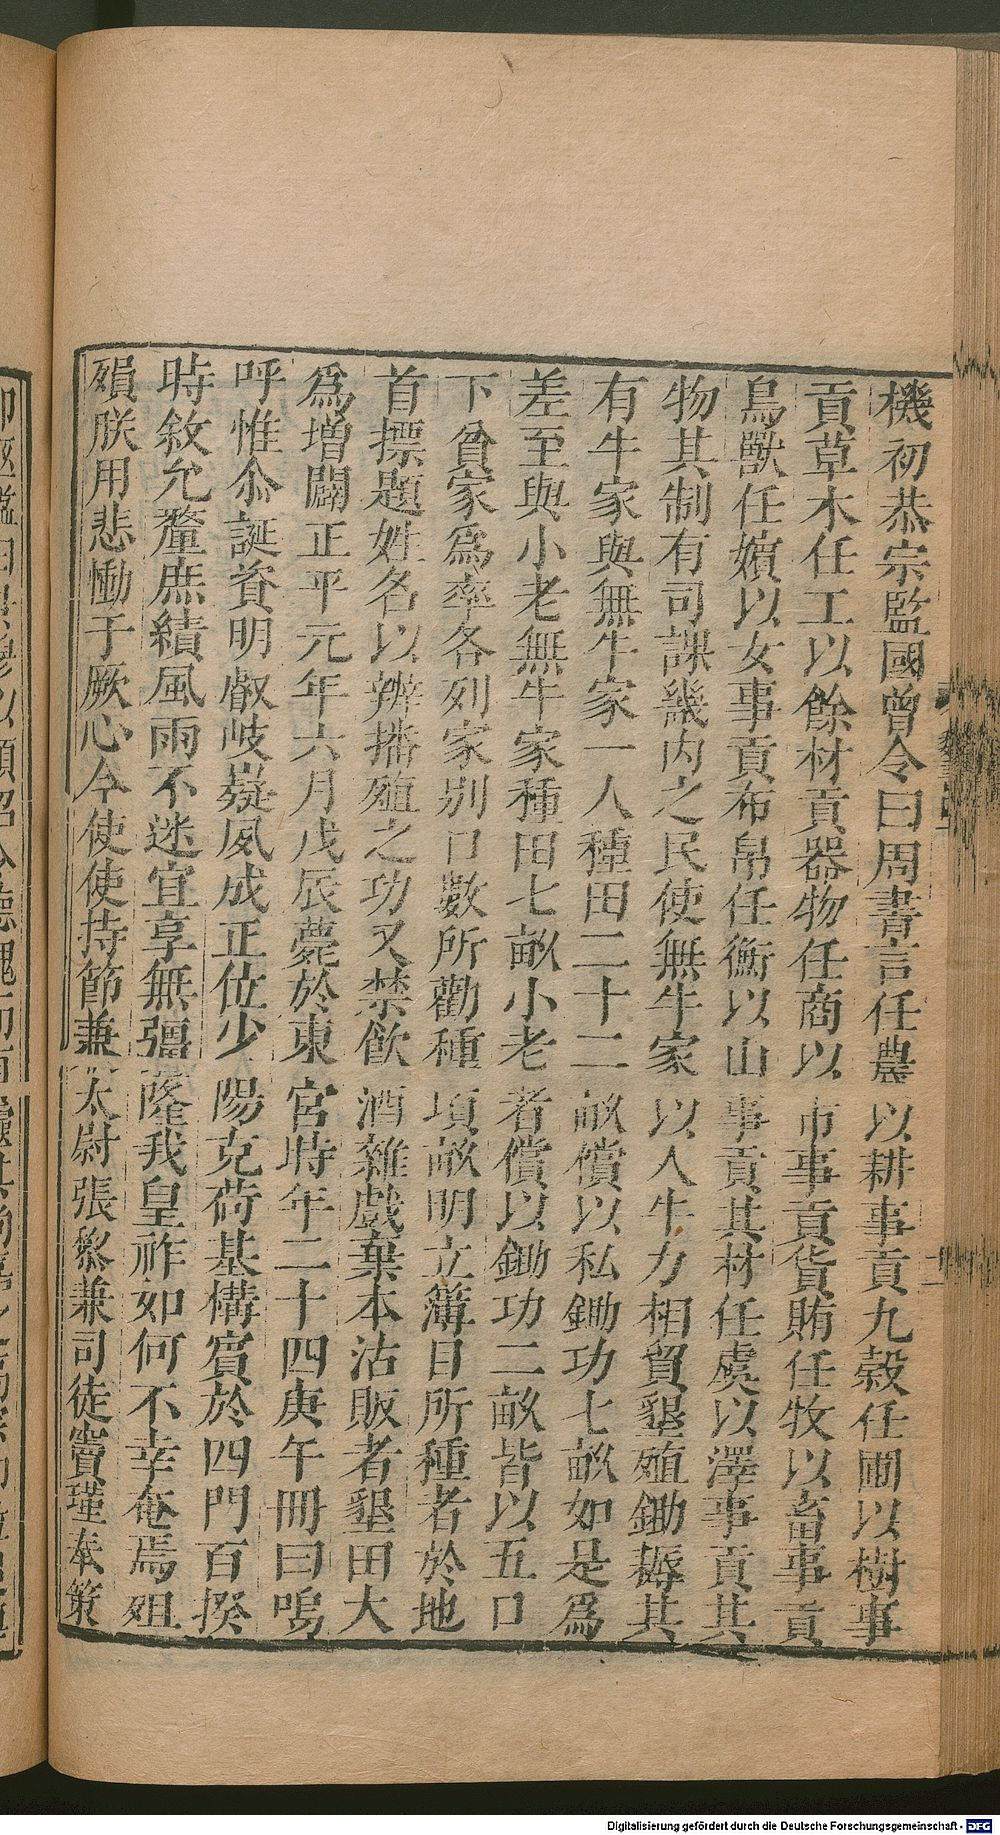 機初恭宗監國曾令曰周書言任農以耕事貢九穀任圃以樹事
貢草木任工以餘材貢器物任商以市事貢貨賄任牧以畜事貢
鳥獸任嬪以女事貢布帛任衡以山事貢其材任虞以澤事貢其
物其制有司課畿内之民使無牛家以人牛力相貿墾殖鋤耨其
有牛家與無牛家一人種田二十二畝償以私鋤功七畝如是爲
差至與小老無牛家種田七畝小老者償以鋤功二畝皆以五口
下貧家爲率各列家別口數所勸種頃畝明立簿目所種者於地
首摽題姓名以辨播殖之功又禁飲酒雜戲棄本沽販者墾田大
爲增闢正平元年六月戊辰薨於東宮時年二十四庚午冊曰嗚
呼惟尒誕資明叡岐嶷夙成正位少陽克荷基構賓於四門百揆
時敘允釐庶績風雨不迷宜享無彊隆我皇祚如何不幸奄焉殂
殞朕用悲慟于厥心今使使持節兼太尉張黎兼司徒竇瑾奉策
Digitalisierung gefördert durch die Deutsche Forschungsgemeinschaft - DFG